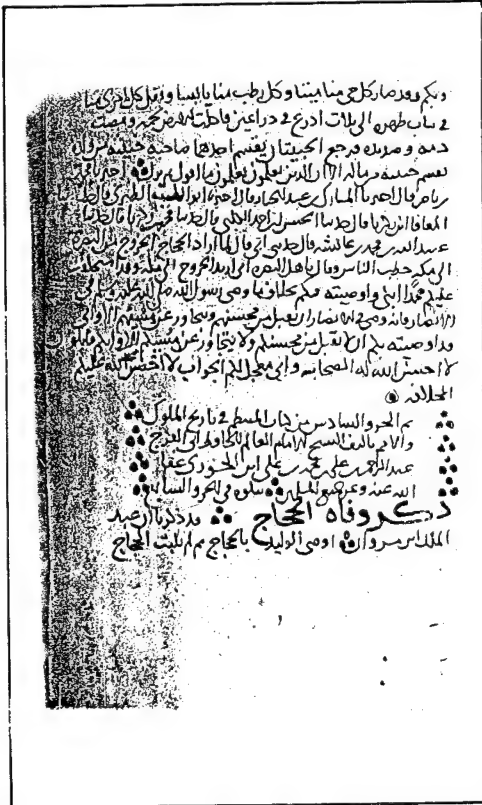 وكل رطب منا يابسا ونقل كل امرئ منا
الى ثلاث اذرع في ذراعين فاكلت الارض لحمه ومصت
دمه وصديده ورجع الحبيبان يقسم احدهما صاحبه
يقسم حبيبه من ماله الا ان الذين يعلمون يعلمون ما اقول ثم نزل اخبرنا محمد بن
ناصر قال اخبرنا المبارك بن عبد الجبار قال اخبرنا ابو الطيب الطبري قال حدثنا
المعافا بن زكريا قال حدثنا الحسين بن احمد الكلبي قال حدثنا محمد بن زكريا قال حدثنا
عبيد الله بن محمد بن عائشة قال حدثني ابي قال لما اراد الحجاج الخروج من البصرة
الى مكة خطب الناس وقال يا اهل البصرة اني اريد الخروج الى مكة وقد استخلفت
عليكم محمدا ابني واوصيته فيكم بخلاف ما وصى رسول الله صلى الله عليه وسلم في
الانصار فانه وصى في الانصار ان يقبل من محسنهم ويتجاوز عن مسيئهم الا واني
قد اوصيته بكم ان لا يقبل من محسنكم ولا يتجاوز عن مسيئكم الا وانكم قائلون
لا احسن الله له الصحابة واني معجل لكم الجواب لا احسن الله عليكم
الخلافة
تم الجزو السادس من كتاب المنتظم في تاريخ الملوك
والامم تاليف الشيخ الامام العالم الحافظ ابي الفرج
عبد الرحمن بن علي بن محمد بن علي ابن الجوزي عفا
الله عنه وعن جميع المسلمين يتلوه في الجزو السابع
ذكر وفاه الحجاج قد ذكرنا ان عبد
الملك ابن مروان اوصى الوليد بالحجاج ثم لم يلبث الحجاج